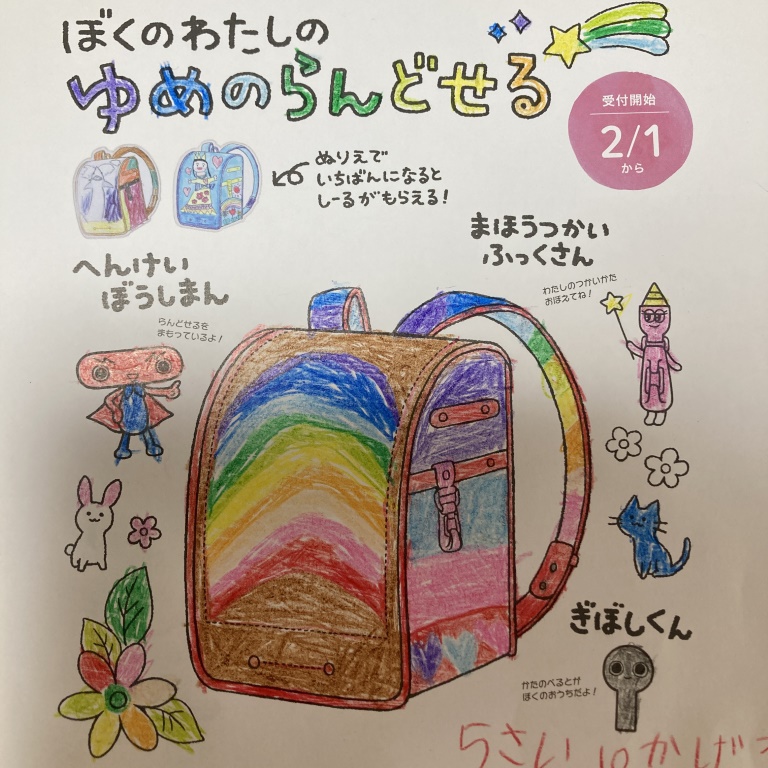 ぼくのわたしの
ゆめのらんどせる
受付開始
2/1
から
ぬりえで
いちばんになると
しーるがもらえる!
まほうつかい
ふっくさん
わたしのつかいかた
おぼえてね!
へんけい
ぼうしまん
らんどせるを
まもっているよ!
ぎぼしくん
かたのべるとが
ぼくのおうちだよ!
5さい 10かげつ